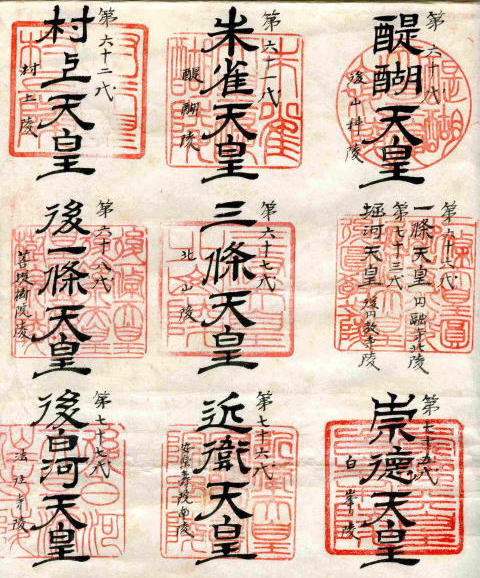 第六十代
醍醐天皇
後山科陵
第六十一代
朱雀天皇
醍醐陵
第六十二代
村上天皇
村上陵
一條天皇 円融寺北陵
第七十三代
堀河天皇 後円教寺陵
第六十七代
三條天皇
北山陵
第六十八代
後一條天皇
菩提樹院陵
第七十五代
崇德天皇
白峯陵
第七十六代
近衛天皇
安楽寿院南陵
第七十七代
後白河天皇
法住寺陵